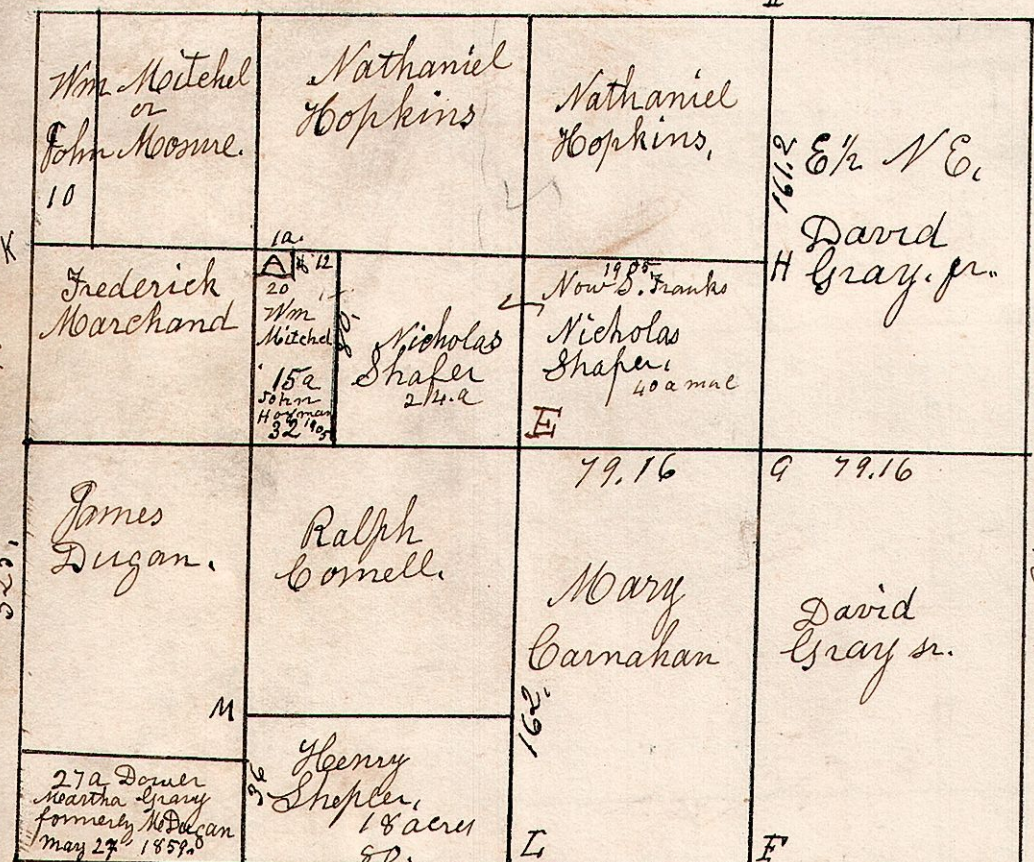 Wm Mitchel
or
John Mosure.
10
Nathaniel
Hopkins
Nathaniel
Hopkins,
161.2
E½ N E.
David
Gray. jr.
H
K
Frederick
Marchand
1a.
A
12
20
Wm
Mitchel
15a
John
32 1905
80.
Nicholas
Shafer
24.a
1905
Now S. Franks
Nicholas
Shafer.
40 a
E
James
Dugan.
M
Ralph
Cornell.
79.16
Mary
Carnahan
162.
L
G 79.16
David
Gray sr.
F
27a Dower
Martha Gray
formerly McDugan
May 27 1859.
36
Henry
Shepler,
18 acres
80.